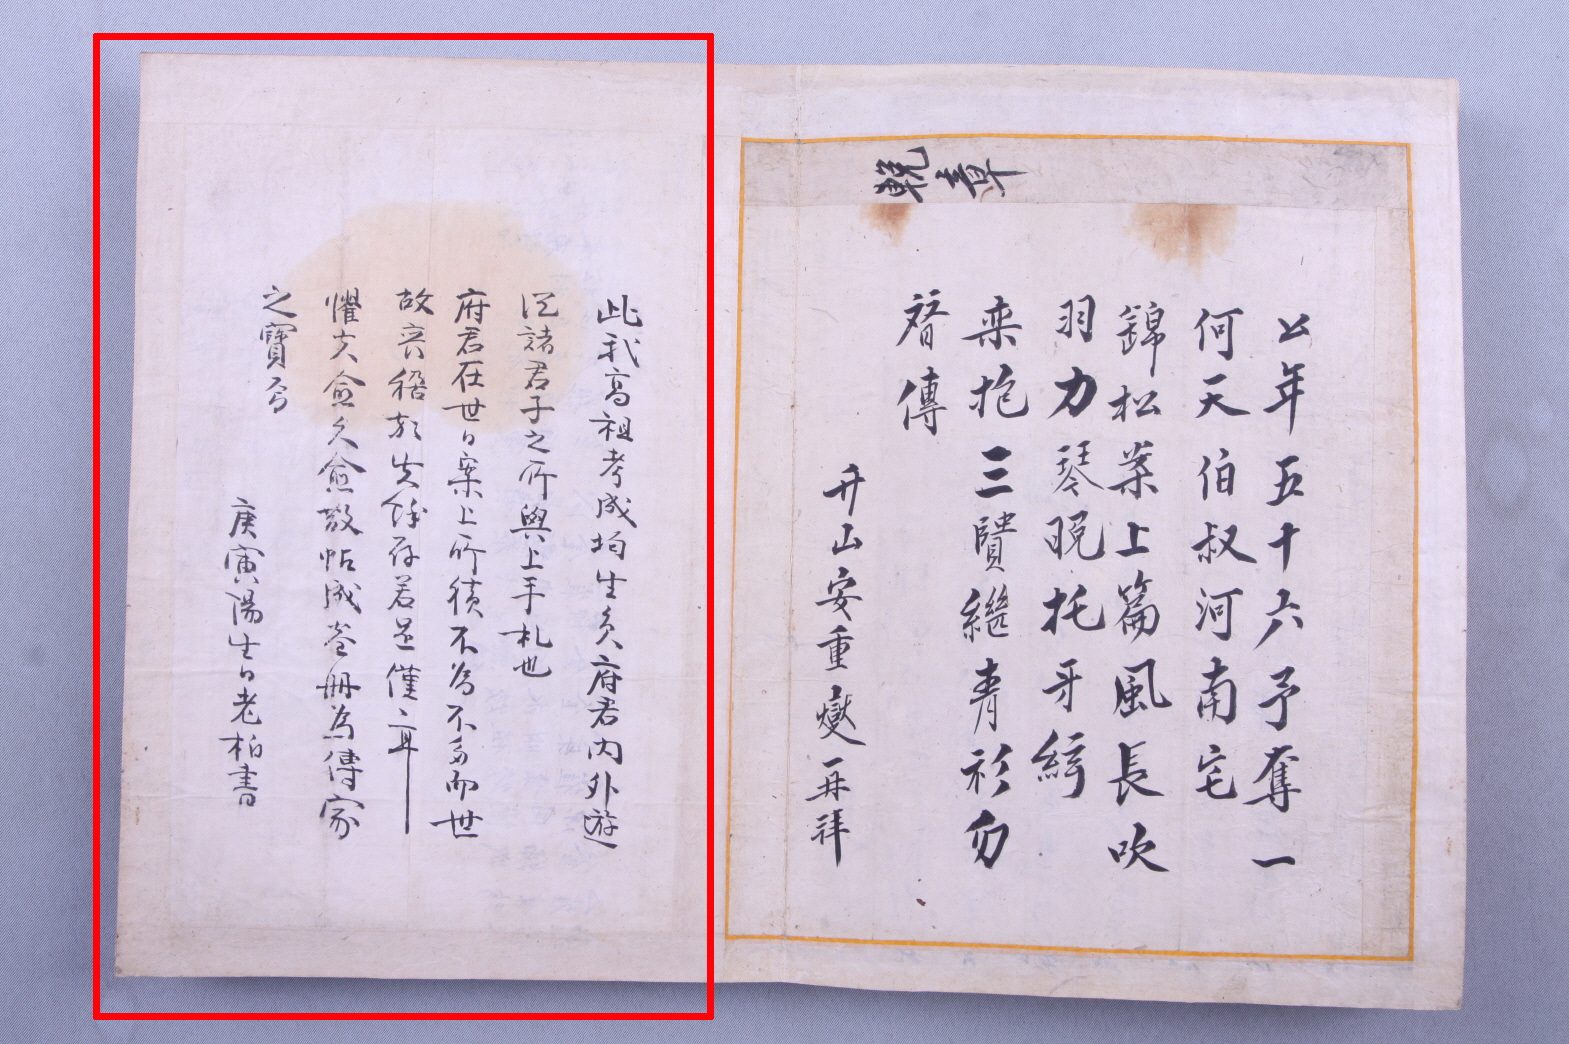 輓章
公年五十六予奪一
何天伯叔河南宅
錦松葉上篇風長吹
羽力琴晩托牙絃
欒抱三隤繼靑衫勿
替傳
竹山安重燮再拜
此我高祖考成均生員府君內外遊
從諸君子之所與上手札也
府君在世日案上所積不爲不多而世
故喪稻於失餘存若是僅耳
懼夫愈久愈散帖成卷冊爲傳家
之寶焉
庚寅陽生日老柏書